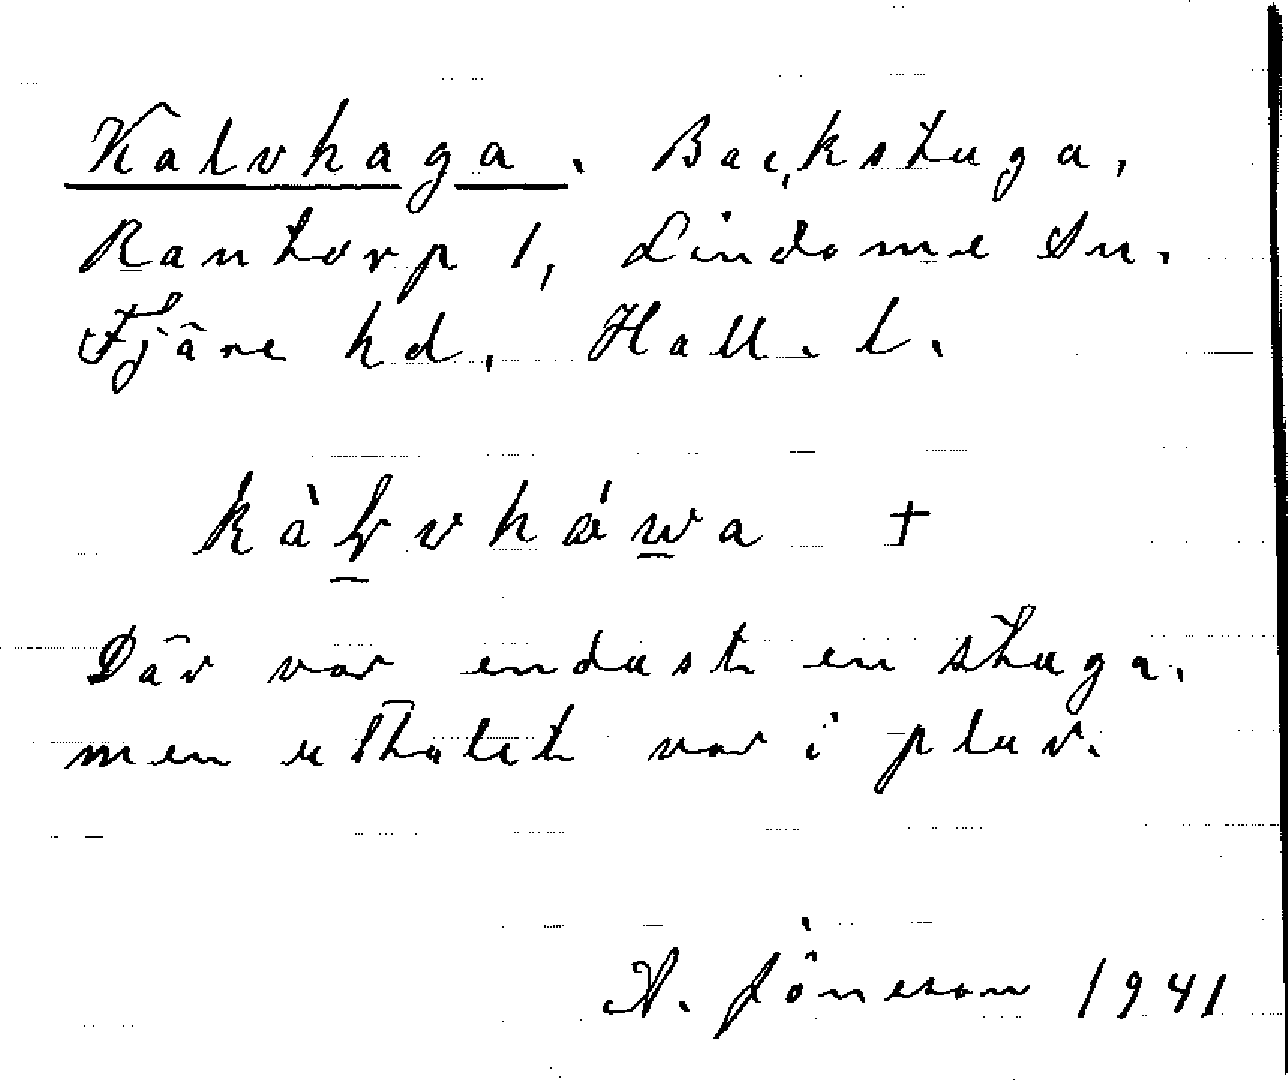 Kalvhaga. Backstuga,
Rantorp 1, Lindome sn.
Fjäre hd. Hall. l.
kàl̬vháwa †
Där var endast en stuga.
men uttalet var i plur.
A. Jöneson 1941